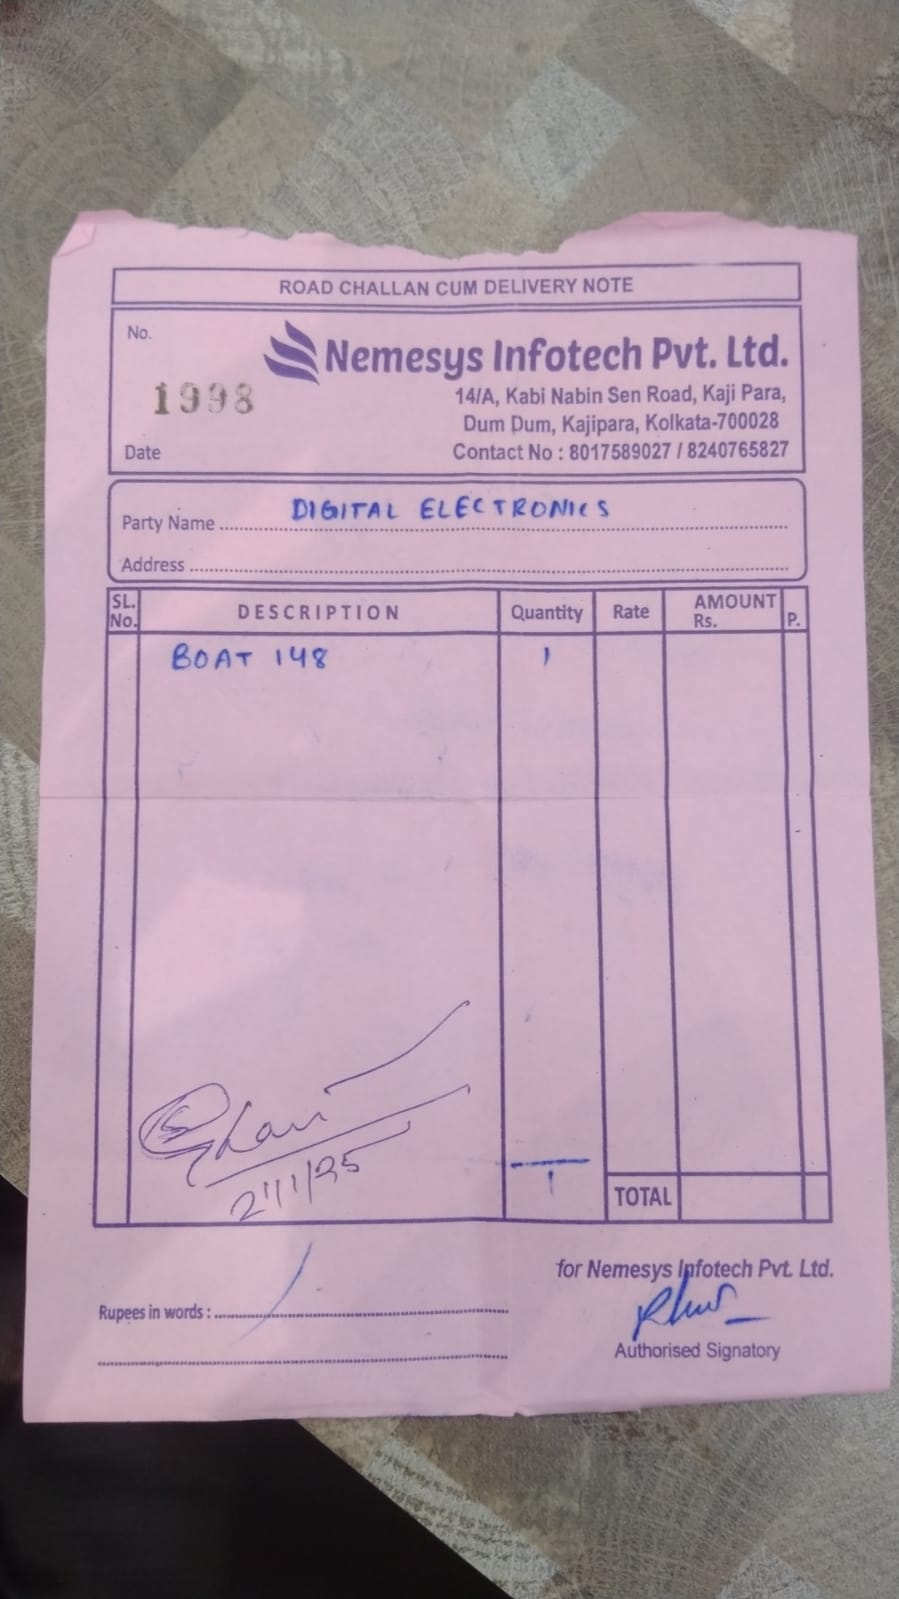 ROAD CHALLAN CUM DELIVERY NOTE
No.
Nemesys Infotech Pvt. Ltd.
1998
14/A, Kabi Nabin Sen Road, Kaji Para,
Dum Dum, Kajipara, Kolkata-700028
Date
Contact No : 8017589027 / 8240765827
Party Name DIGITAL ELECTRONICS
Address
SL. No. DESCRIPTION Quantity Rate AMOUNT Rs. P.
BOAT 148 1
1
TOTAL
for Nemesys Infotech Pvt. Ltd.
Rupees in words :
Authorised Signatory